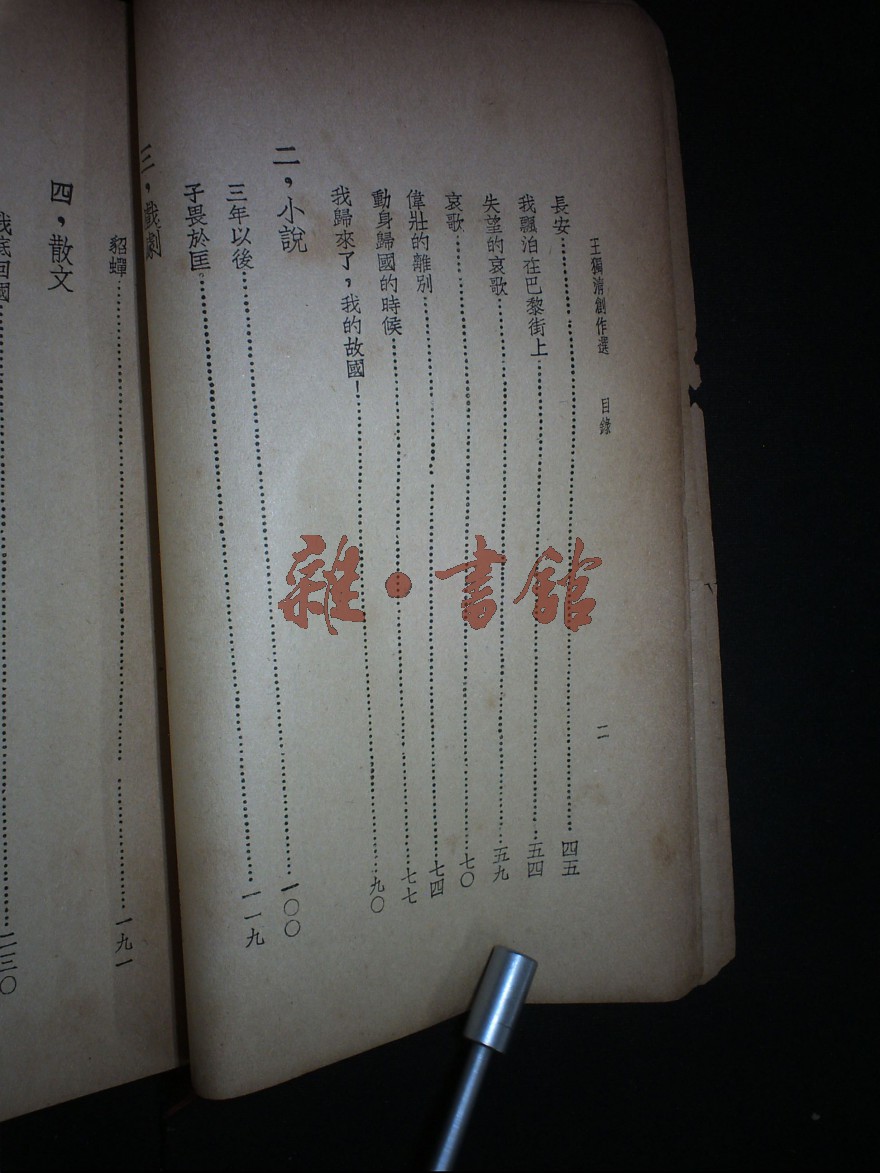 王獨清創作選 目錄 二
長安……四五
我飄泊在巴黎街上……五四
失望的哀歌……五九
哀歌……七〇
偉壯的離別……七四
動身歸國的時候……七七
我歸來了，我的故國！……九〇
二，小說
三年以後……一〇〇
子畏於匡……一一九
三，戲劇
貂蟬……一九一
四，散文
我底回國……二三〇
雜·書館